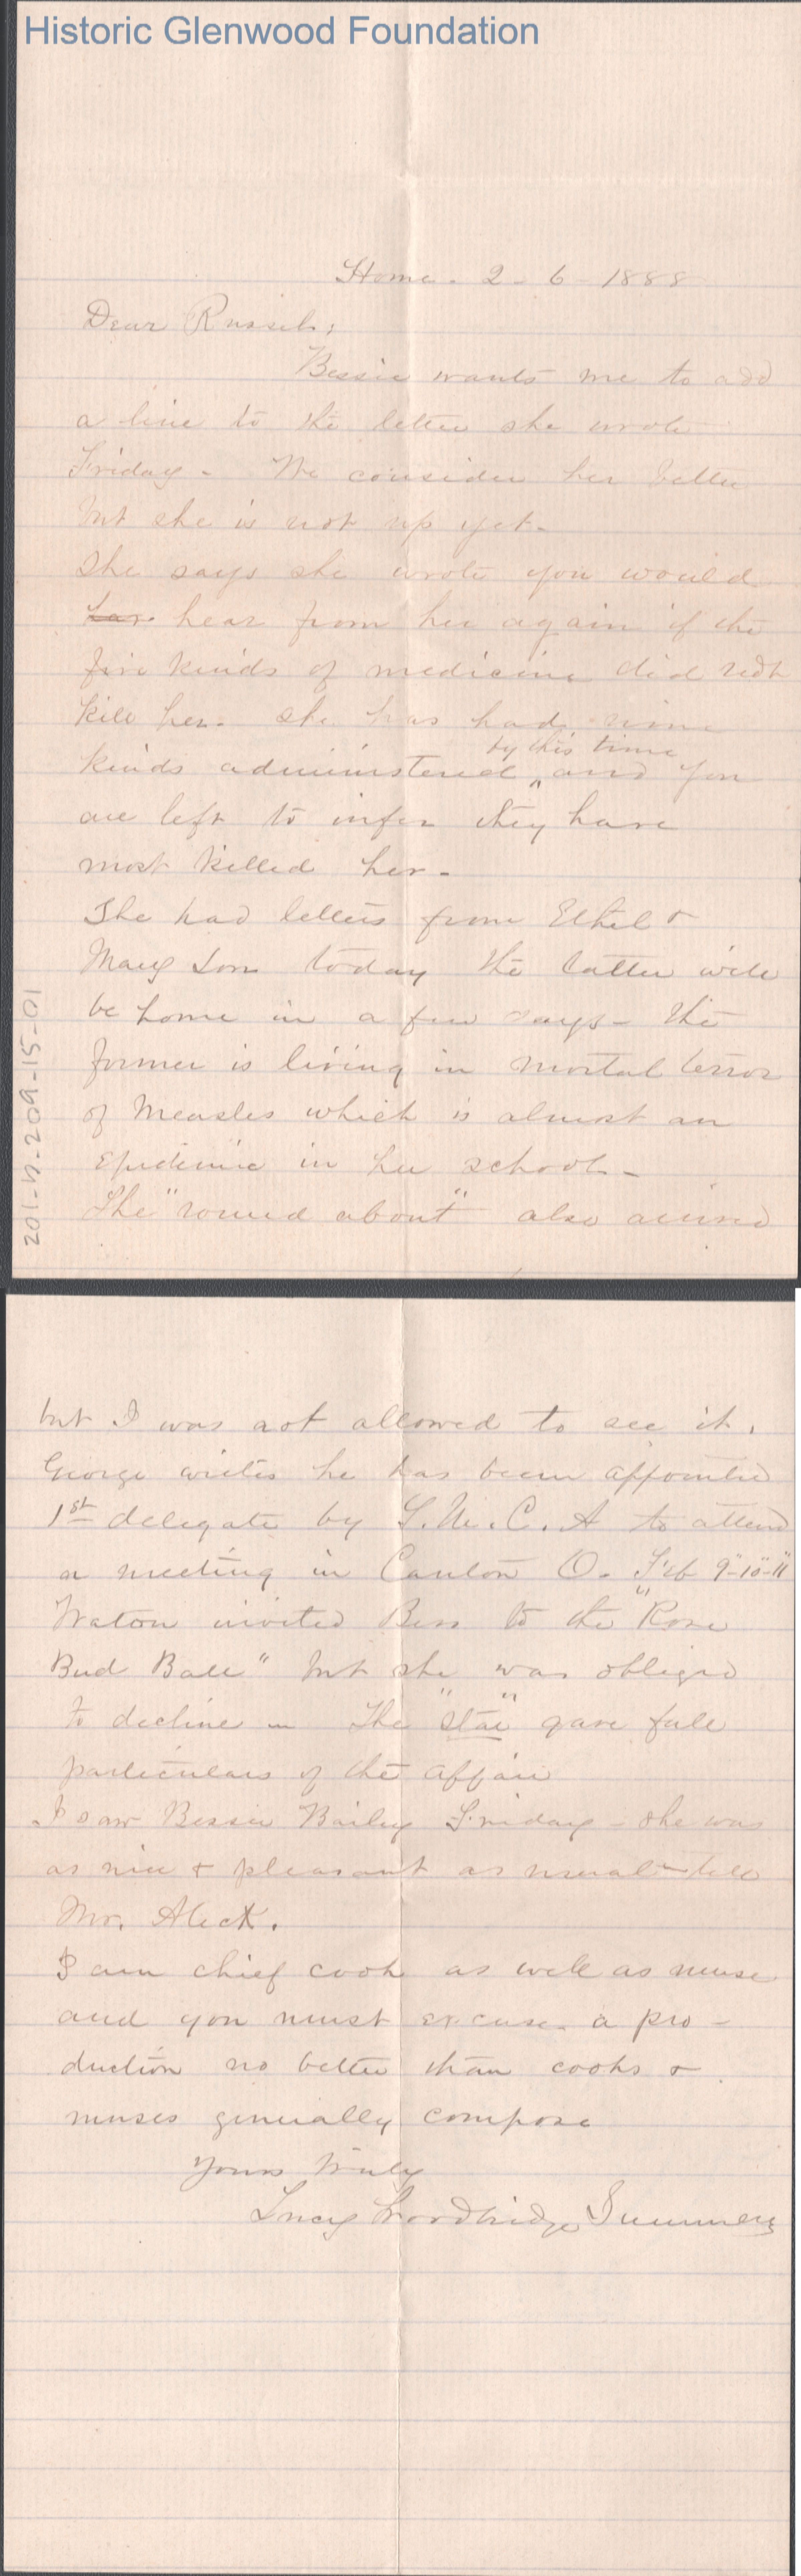 Historic Glenwood Foundation
Home. 2-6-1888
Dear Russel;
Bessie wants me to add
a line to the letter she wrote
Friday - We consider her better
but she is not up yet.
She says she wrote you would
hear from her again if the
five kinds of medicine did not
kill her. She has had nine
by this time
kinds administered " and you
are left to infer they have
most killed her -
She had letters from Ethel &
Mary Lou today the latter will
be home in a few days - the
former is living in mortal terror
of Measles which is almost an
Epidemic in her school -
The "round about" also arrived
201-4-209-15-01
but I was not allowed to see it.
George writes he has been appointed
1st delegate by Y.M.C.A to attend
a meeting in Canton O. Feb 9"-10"-11"
invited Bess to the "Rose
Bud Ball" but she was obliged
to decline - The "Star" gave full
particulars of the affair
I saw Bessie Bailey Friday - she was
as nice & pleasant as usual - tell
Mr. Aleck.
I am chief cook as well as nurse
and you must excuse a pro -
duction no better than cooks &
nurses generally compose
Yours truly
Lucy Woodbridge Summers